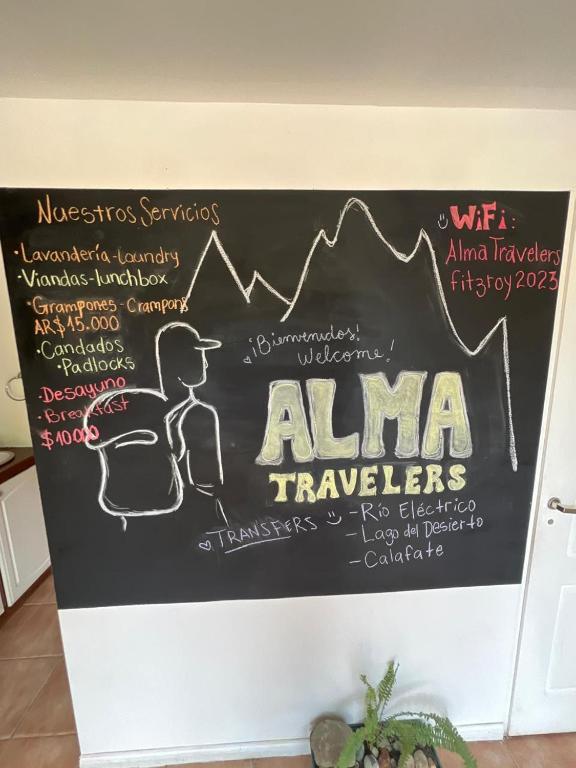 Nuestros Servicios
• Lavandería - laundry
• Viandas - lunchbox
• Grampones - Crampons
AR$15.000
• Candados
• Padlocks
• Desayuno
• Breakfast
$10000
WiFi:
Alma Travelers
fitzroy2023
¡Bienvenidos!
Welcome!
ALMA
TRAVELERS
TRANSFERS
- Rio Eléctrico
- Lago del Desierto
- Calafate